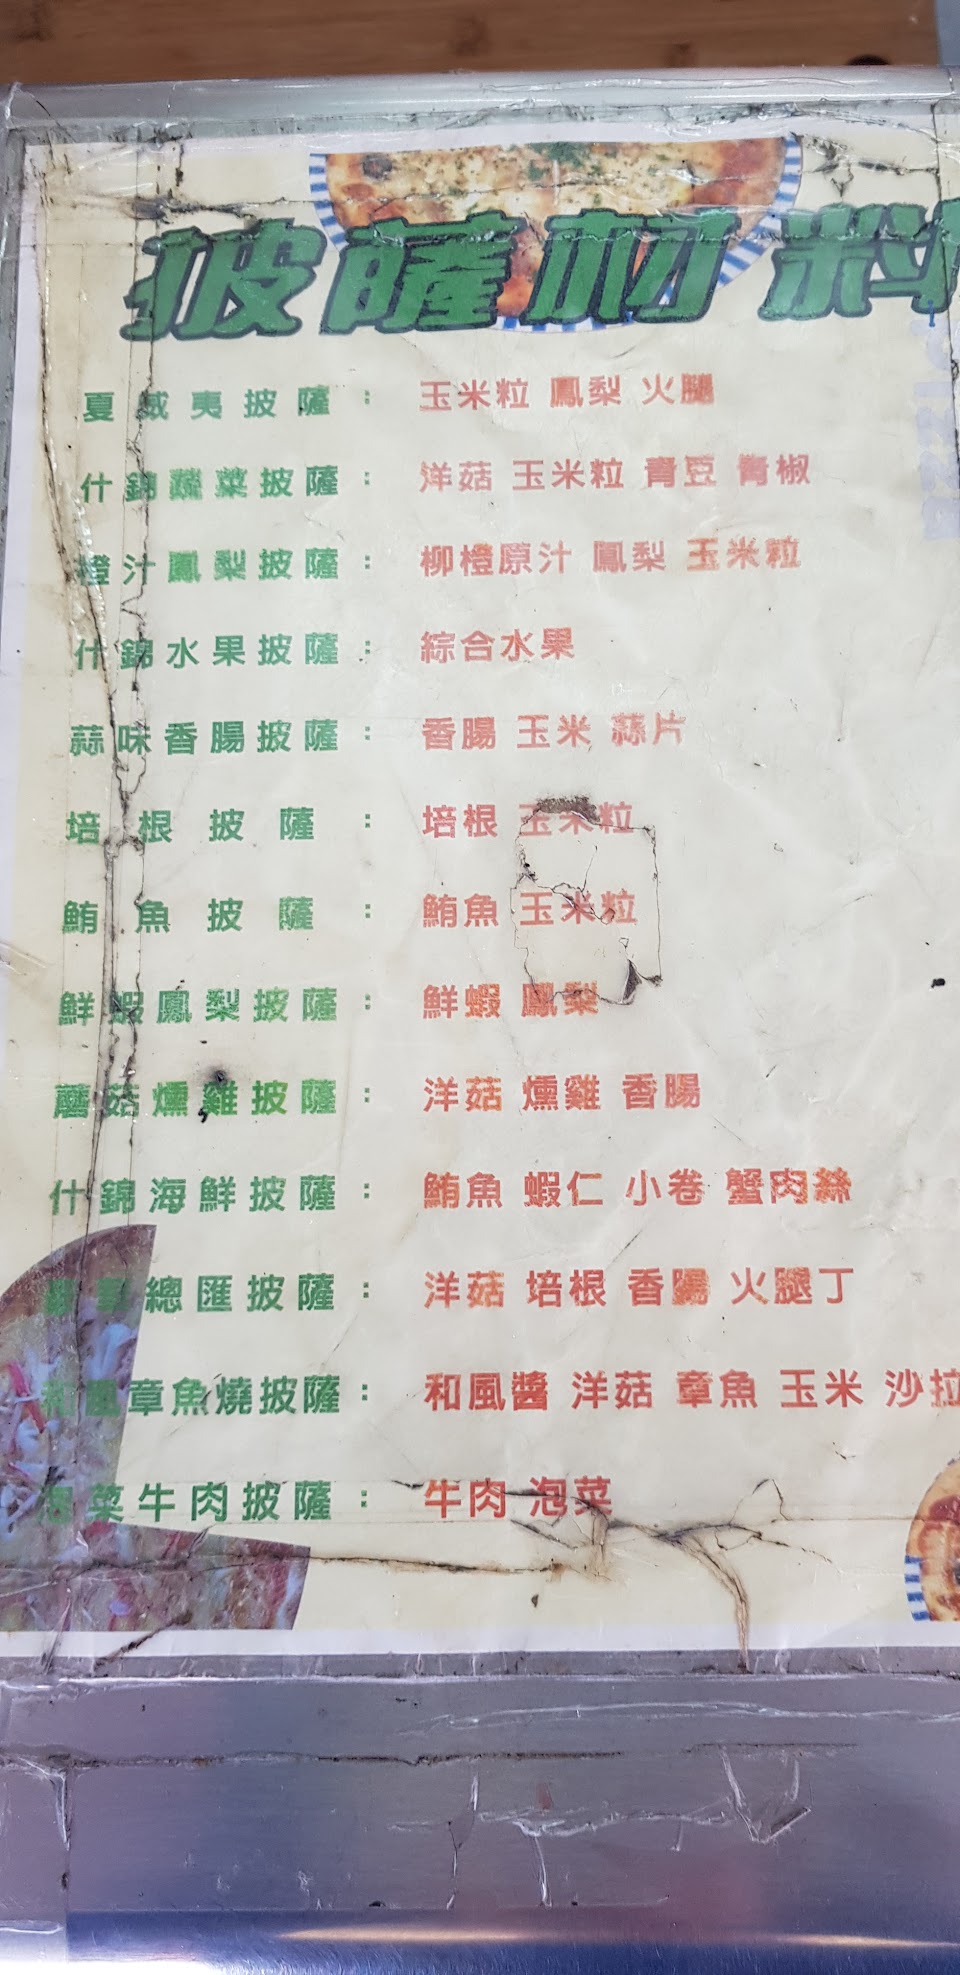 披薩材料
夏威夷披薩： 玉米粒 鳳梨 火腿
什錦蔬菜披薩： 洋菇 玉米粒 青豆 青椒
橙汁鳳梨披薩： 柳橙原汁 鳳梨 玉米粒
什錦水果披薩： 綜合水果
蒜味香腸披薩： 香腸 玉米 蒜片
培根披薩： 培根 玉米粒
鮪魚披薩： 鮪魚 玉米粒
鮮蝦鳳梨披薩： 鮮蝦 鳳梨
蘑菇燻雞披薩： 洋菇 燻雞 香腸
什錦海鮮披薩： 鮪魚 蝦仁 小卷 蟹肉絲
總匯披薩： 洋菇 培根 香腸 火腿丁
和風章魚燒披薩： 和風醬 洋菇 章魚 玉米 沙拉
泡菜牛肉披薩： 牛肉 泡菜